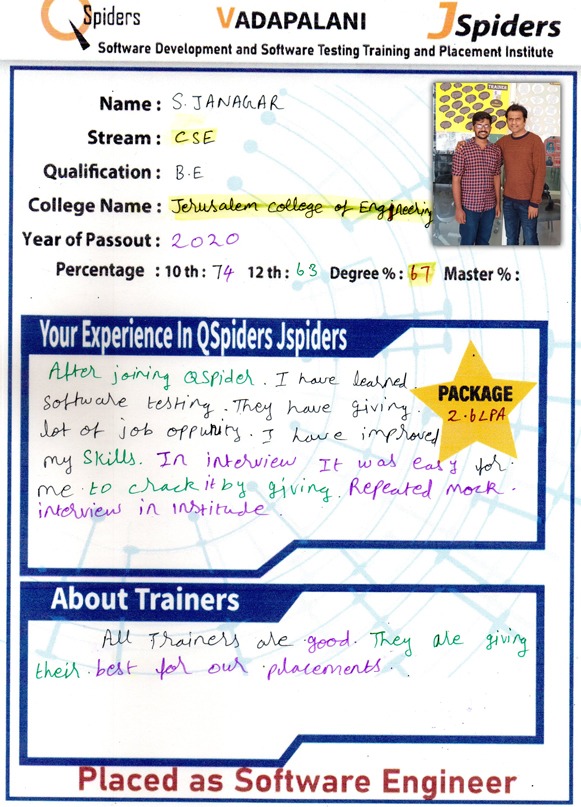 QSpiders VADAPALANI JSpiders
Software Development and Software Testing Training and Placement Institute
Name : S. JANAGAR
Stream : CSE
Qualification : B.E
College Name : Jerusalem college of Engineering
Year of Passout : 2020
Percentage : 10 th : 74 12 th : 63 Degree % : 67 Master % :
Your Experience In QSpiders Jspiders
After joining QSpider. I have learned
software testing. They have giving
lot of job oppunity. I have improved
my Skills. In interview It was easy for
me to crack it by giving Repeated mock
interview in institude.
PACKAGE
2.6LPA
About Trainers
All Trainers are good. They are giving
their best for our placements.
Placed as Software Engineer